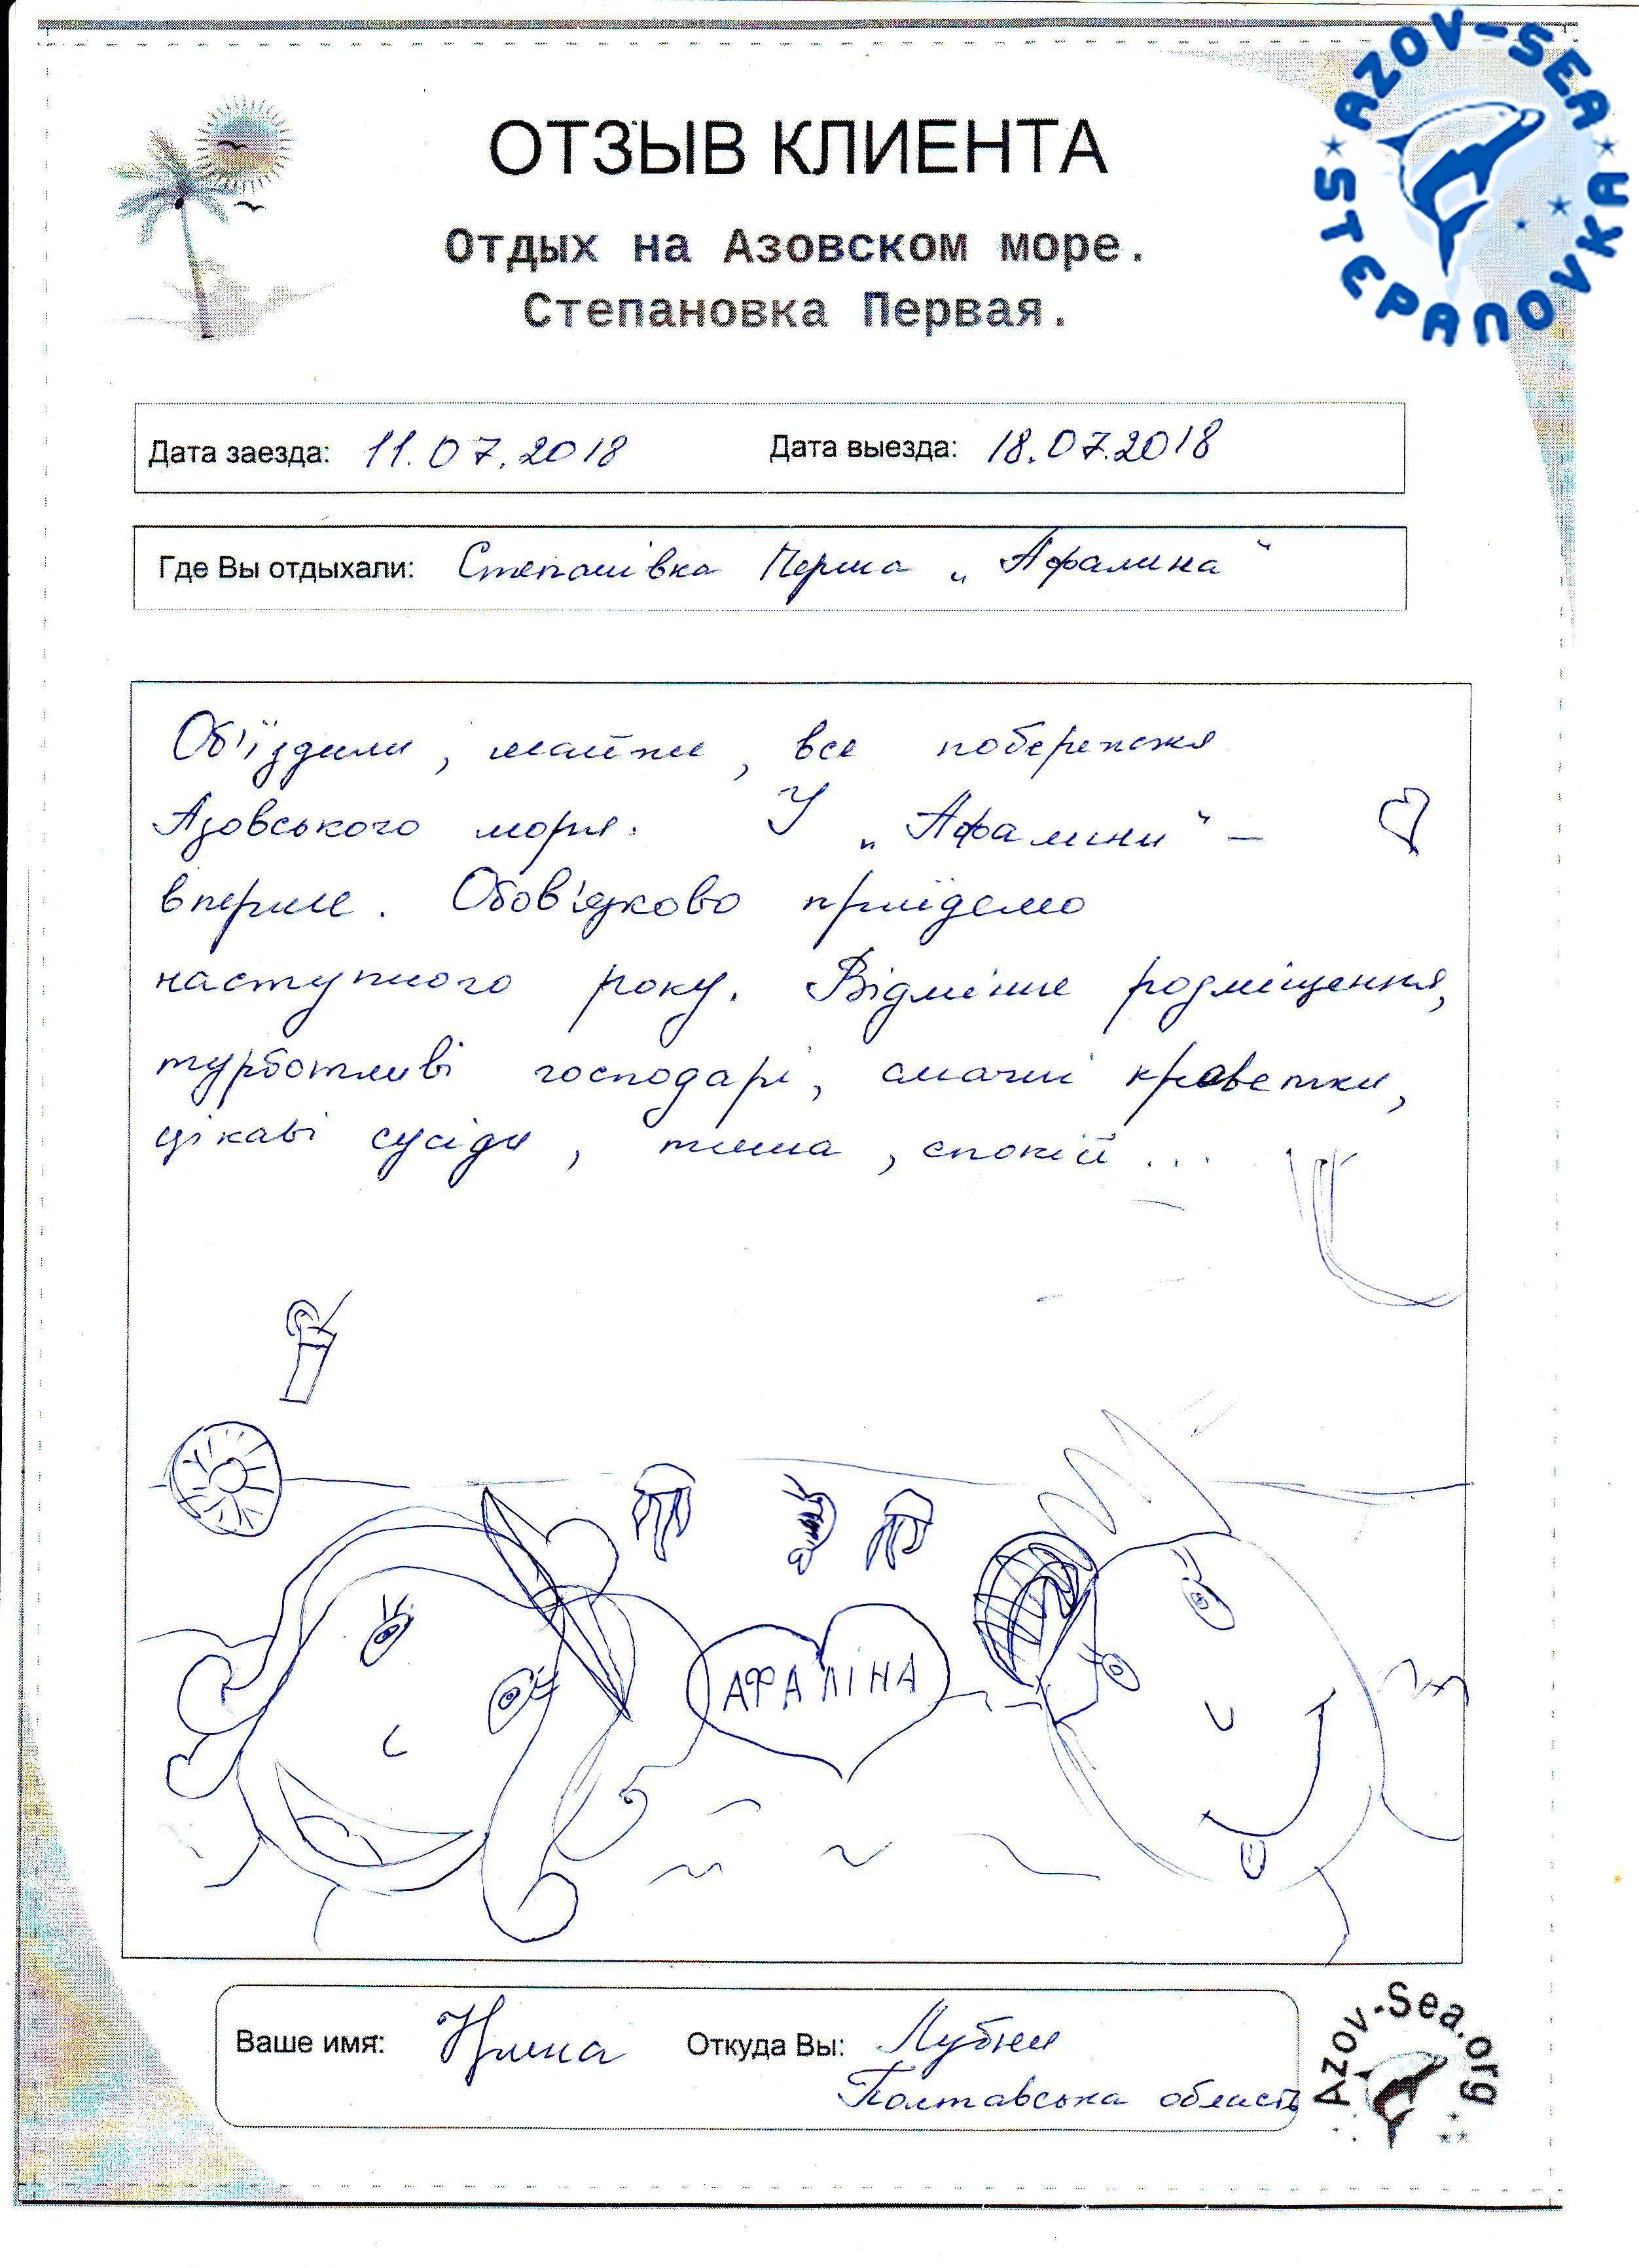 AZOV-SEA
STEPANOVKA
ОТЗЫВ КЛИЕНТА
Отдых на Азовском море.
Степановка Первая.
Дата заезда: 11.07.2018 Дата выезда: 18.07.2018
Где Вы отдыхали: Степанівка Перша „Афалина“
Об'їздили, майже, все побережжя
Азовського моря. У „Афалини“ –
вперше. Обов'язково приїдемо
наступного року. Відмінне розміщення,
турботливі господарі, смачні креветки,
цікаві сусіди, тиша, спокій...
АФАЛІНА
Ваше имя: Ирина Откуда Вы: Лубни
Полтавська область
Azov-Sea.org